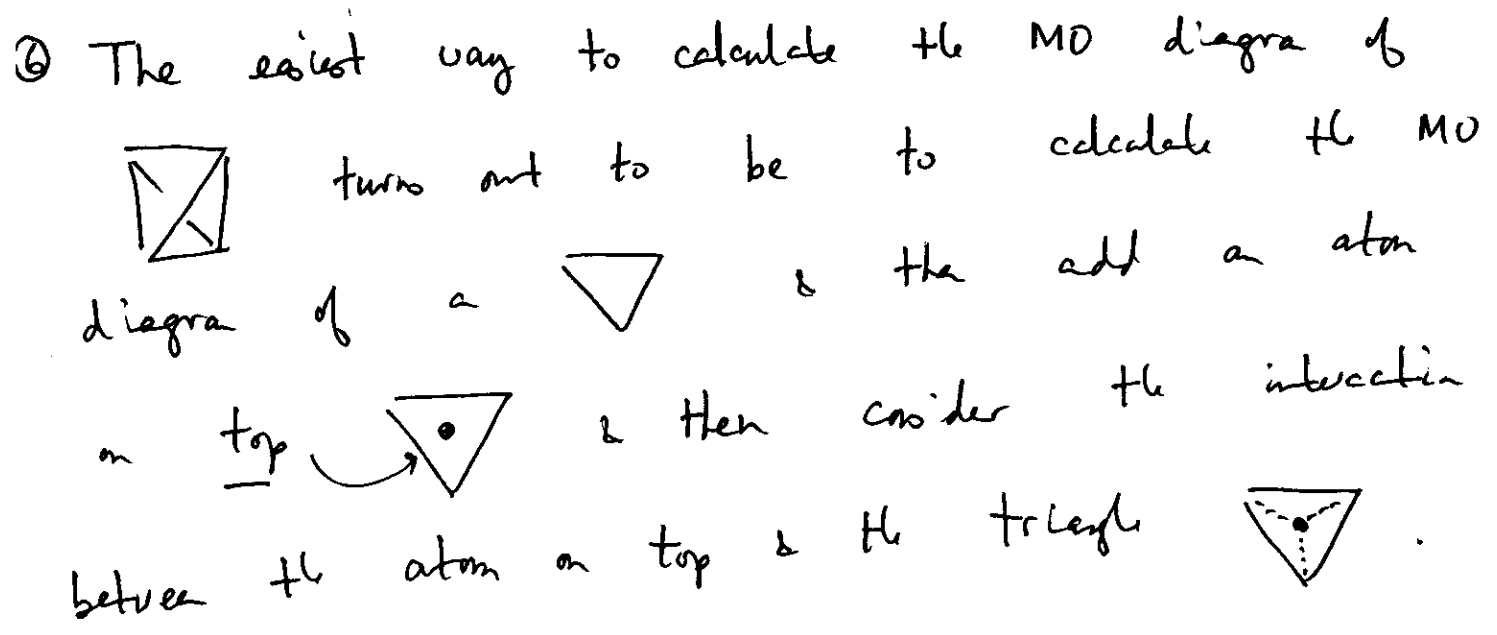 ⑥ The easiest way to calculate the MO diagra of
turns out to be to calculate the MO
diagra of a & the add an atom
on top & then consider the interaction
between the atom on top & the triangle .